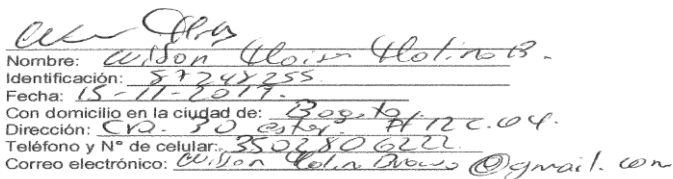 Nombre: Wilson Moises Molina B.
Identificación: 87248255
Fecha: 15-11-2017.
Con domicilio en la ciudad de: Bogota.
Dirección: Cra. 30 # 12 c. 04.
Teléfono y N° de celular: 3502806222
Correo electrónico: Wilson @gmail.com